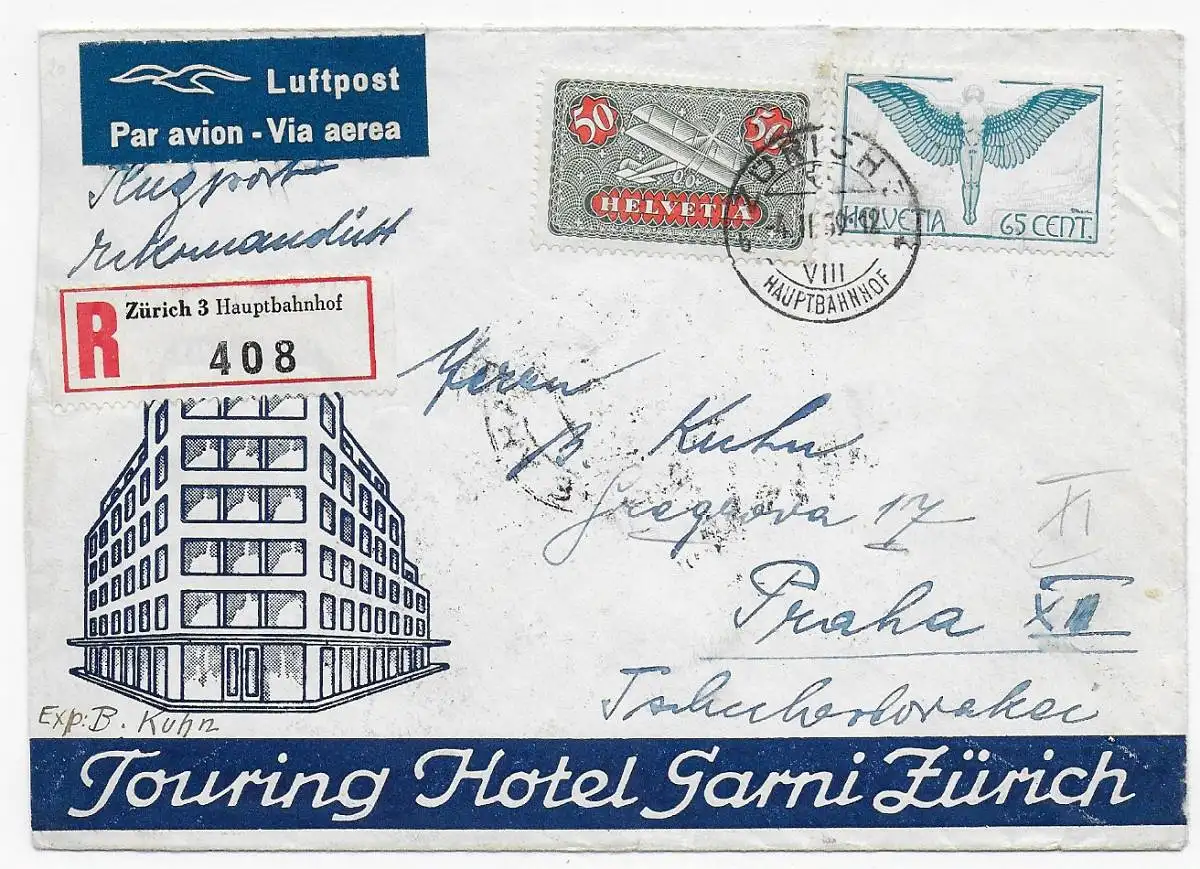 Luftpost
Par avion - Via aerea
Flugpost
rekomandiert
R Zürich 3 Hauptbahnhof
408
50 50
HELVETIA
HELVETIA 65 CENT.
VIII
HAUPTBAHNHOF
Herrn
B. Kuhn
Gregrova 17
XI
Praha XII
Tschechoslovakei
Exp: B. Kuhn
Touring Hotel Garni Zürich